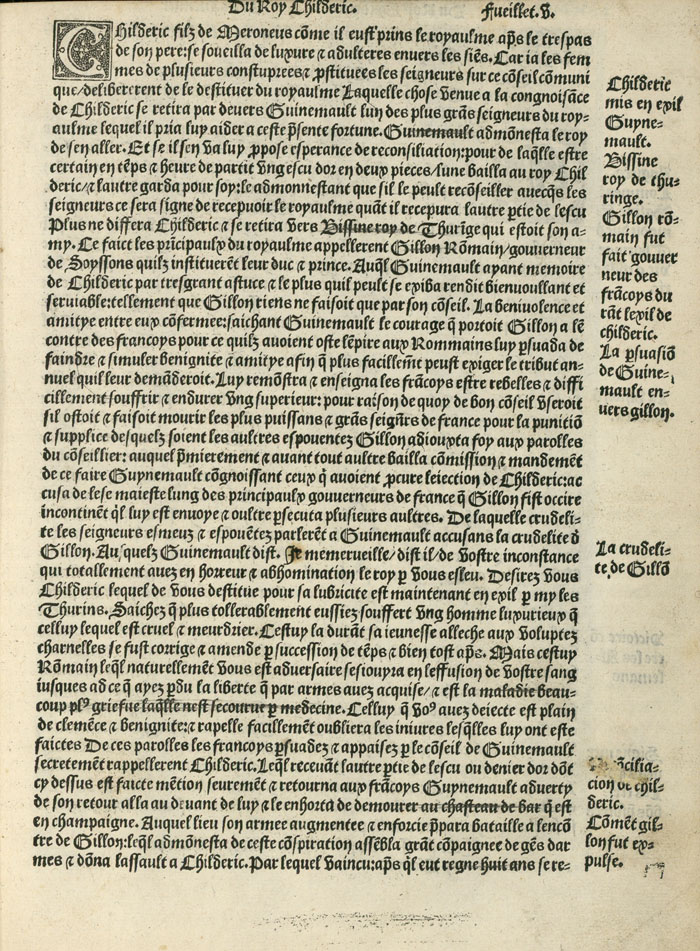 Du Roy Childeric.
Fueillet. v.
CHilderic filz de Meroneus cõme il eust prins le royaulme ap̃s le trespas
de son pere: se souilla de luxure ⁊ adulteres enuers les siẽs. Car ia les fem
mes de plusieurs constuprees ⁊ ꝓstituees les seigneurs sur ce cõseil cõmuni
que/delibererent de le destituer du royaulme Laquelle chose venue a la congnoisãce
de Childeric se retira par deuers Guinemault lun des plus grãs seigneurs du roy-
aulme lequel il pria luy aider a ceste p̃sente fortune. Guinemault admõnesta le roy
de sen aller. Et se il sen va luy ꝓpose esperance de reconsiliation: pour de laq̃lle estre
certain en tẽps ⁊ heure de partit vng escu dor en deux pieces/lune bailla au roy Chil
deric/⁊ lautre garda pour soy: le admonnestant que sil le peult recõseiller auecq̃s les
seigneurs ce sera signe de recepuoir le royaulme quãt il recepura lautre ꝑtie de lescu
Plus ne differa Childeric ⁊ se retira vers Bissine roy de Thurĩge qui estoit son a-
my. Ce faict les prĩcipaulx du royaulme appellerent Gillon Rõmain/gouuerneur
de Soyssons quilz instituerẽt leur duc ⁊ prince. Auq̃l Guinemault ayant memoire
de Childeric par tresgrant astuce ⁊ le plus quil peult se exiba rendit bienuoullant et
seruiable: tellement que Gillon riens ne faisoit que par son cõseil. La beniuolence et
amitye entre eux cõfermee: saichant Guinemault le courage q̃ portoit Gillon a lẽ
contre des francoys pour ce quilz auoient oste lẽpire aux Rommains luy ꝑsuada de
faindre ⁊ simuler benignite ⁊ amitye afin q̃ plus facillem̃t peust exiger le tribut an-
nuel quil leur demãderoit. Luy remõstra ⁊ enseigna les frãcoys estre rebelles ⁊ diffi
cillement souffrir ⁊ endurer vng superieur: pour raison de quoy de bon cõseil vseroit
sil ostoit ⁊ faisoit mourir les plus puissans ⁊ grãs seigñrs de france pour la punitiõ
⁊ supplice desquelz soient les aultres espouentez Gillon adiouxta foy aux parolles
du cõseillier: auquel p̃mierement ⁊ auant tout aultre bailla cõmission ⁊ mandemẽt
de ce faire Guynemault cõgnoissant ceux q̃ auoient ꝓcure leiection de Childeric: ac
cusa de lese maieste lung des principaulx gouuerneurs de france q̃ Gillon fist occire
incontinẽt q̃l luy est enuoye ⁊ oultre ꝑsecuta plusieurs aultres. De laquelle crudeli-
te les seigneurs esmeuz ⁊ espouẽtez parlerẽt a Guinemault accusans la crudelite d̃
Gillon. Ausquelz Guinemault dist. Je memerueille/dist il/de vostre inconstance
qui totallement auez en horreur ⁊ abhomination le roy ꝑ vous esleu. Desirez vous
Childeric lequel de vous destitue pour sa lubricite est maintenant en exil ꝑ my les
Thurins. Saichez q̃ plus tollerablement eussiez souffert vng homme luxurieux q̃
celluy lequel est cruel ⁊ meurdrier. Cestuy la durãt sa ieunesse alleche aux voluptez
charnelles se fust corrige ⁊ amende ꝑ succession de tẽps ⁊ bien tost ap̃s. Mais cestuy
Rõmain leq̃l naturellemẽt vous est aduersaire sesiouyra en leffusion de vostre sang
iusques ad ce q̃ ayez ꝑdu la liberte q̃ par armes auez acquise/⁊ est la maladie beau-
coup plꝰ griefue laq̃lle nest secourue ꝑ medecine. Celluy q̃ voꝰ auez deiecte est plain
de clemẽce ⁊ benignite: ⁊ rapelle facillement oubliera les iniures lesq̃lles luy ont este
faictes De ces parolles les francoys ꝑsuadez ⁊ appaisez ꝑ le cõseil de Guinemault
secretement rappellerent Childeric. Leq̃l receuãt lautre ꝑtie de lescu ou denier dor dõt
cy dessus est faicte mẽtion seuremẽt ⁊ retourna aux frãcoys Guynemault aduerty
de son retour alla au deuant de luy ⁊ le enhorta de demourer au chasteau de bar q̃ est
en champaigne. Auquel lieu son armee augmentee ⁊ enforcie p̃para bataille a lencõ
tre de Gillon: leq̃l admõnesta de ceste cõspiration assẽbla grãt cõpaignee de gẽs dar
mes ⁊ dõna lassault a Childeric. Par lequel vaincu: ap̃s q̃l eut regne huit ans se re-
Childeric
mis en exil
Guyne-
mault.
Bissine
roy de thu-
ringe.
Gillon rõ-
main fut
fait gouuer
neur des
frãcoys du
rãt lexil de
childeric.
La ꝑsuasiõ
de Guine-
mault en-
uers gillon.
La crudeli-
te de Gillõ
cion de chil-
deric.
Cõmẽt gil-
lon fut ex-
pulse.